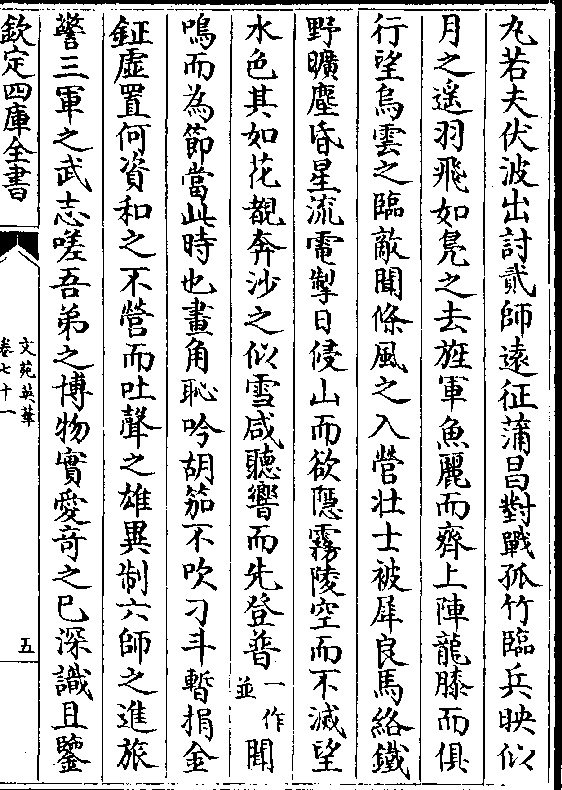 九若夫伏波出討貳師逺征蒲昌對戰孤竹臨兵映似
月之遥羽飛如鳬之去旌軍魚麗而齊上陣龍膝而俱
行望烏雲之臨敵聞條風之入營壮士被犀良馬絡鐵
野曠塵昏星流電掣日侵山而欲隱霧陵空而不滅望
水色其如花覩奔沙之似雪咸聽響而先登普一作並聞
鳴而為節當此時也畫角恥吟胡笳不吹刁斗暫捐金
鉦虚置何資和之不營而吐聲之雄異制六師之進旅
警三軍之武志嗟吾弟之博物實愛竒之已深識且鑒
欽定四庫全書
文苑英華
卷七十一
五